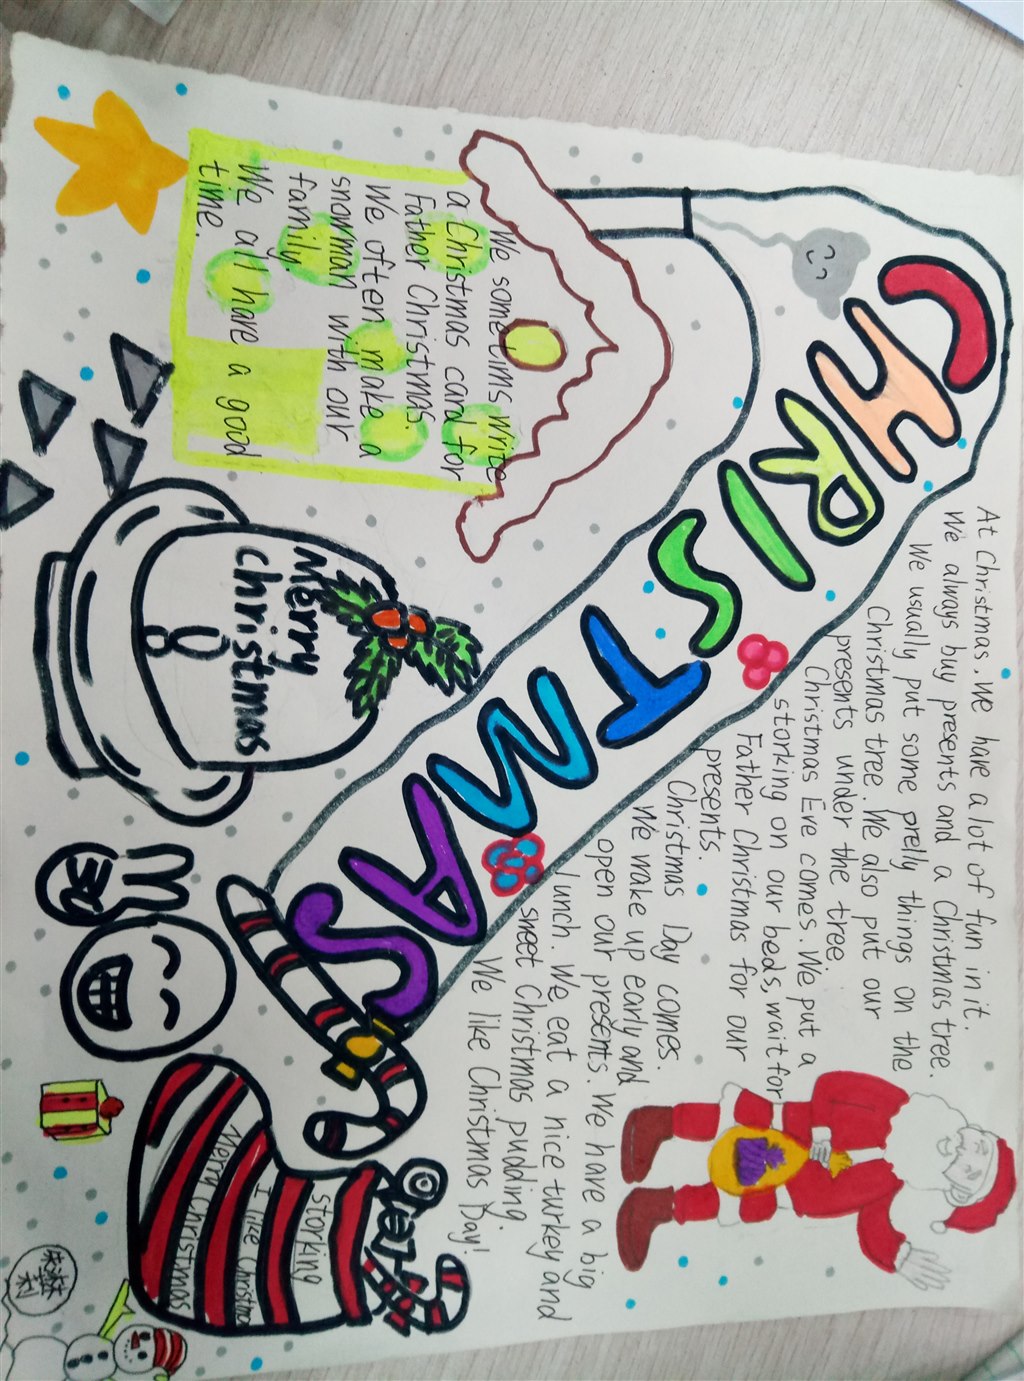 CHRISTMAS
At Christmas, we have a lot of fun in it.
We always buy presents and a Christmas tree.
We usually put some prelly things on the
Christmas tree. We also put our
presents under the tree
Christmas Eve comes. We put a
storking on our beds, wait for
Father Christmas for our
presents.
Christmas Day comes.
We wake up early and
open our presents. We have a big
lunch. We eat a nice turkey and
sweet Christmas pudding.
We like Christmas Day!
We sometims write
a Christmas card for
Father Christmas.
We often make a
snowman with our
family.
We all have a good
time.
Merry
Christmas
storking
I like Christmas
Merry Christmas